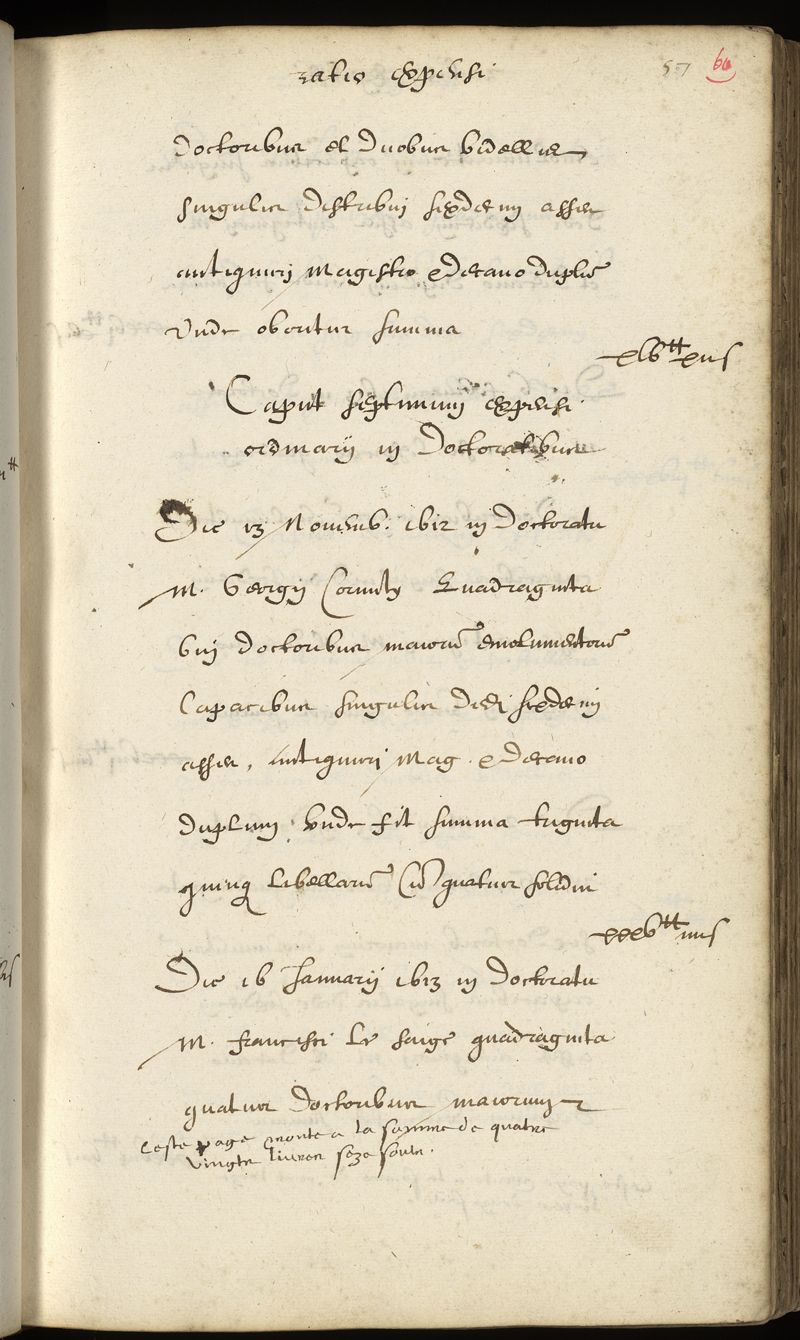 ratio expensi
57 60
doctoribus et duobus bidellis
singulis distribui sexdecim asses
antiquiori Magistro & decano duplũ
Unde oboritur summa
xlv tt xii s
Caput septimum expensi
ordinarij in Doctoratibus
Die 13 Novemb. 1612 in Doctoratu
M. Georgij Cornuty Quadraginta
doctoribus maiorũ emolumentorũ
Capacibus singulis dedi sexdecim
asses, Antiquiori Mag. & decano
duplum unde fit summa triginta
quinq libellarũ cũ quatuor solidis
xxxv tt iiii s
Die 16 Januarij 1613 in Doctoratu
M. francisci le saige quadraginta
quatuor Doctoribus maiorum
Ceste page monte a la somme de quatre
vingts livres seze soulz.